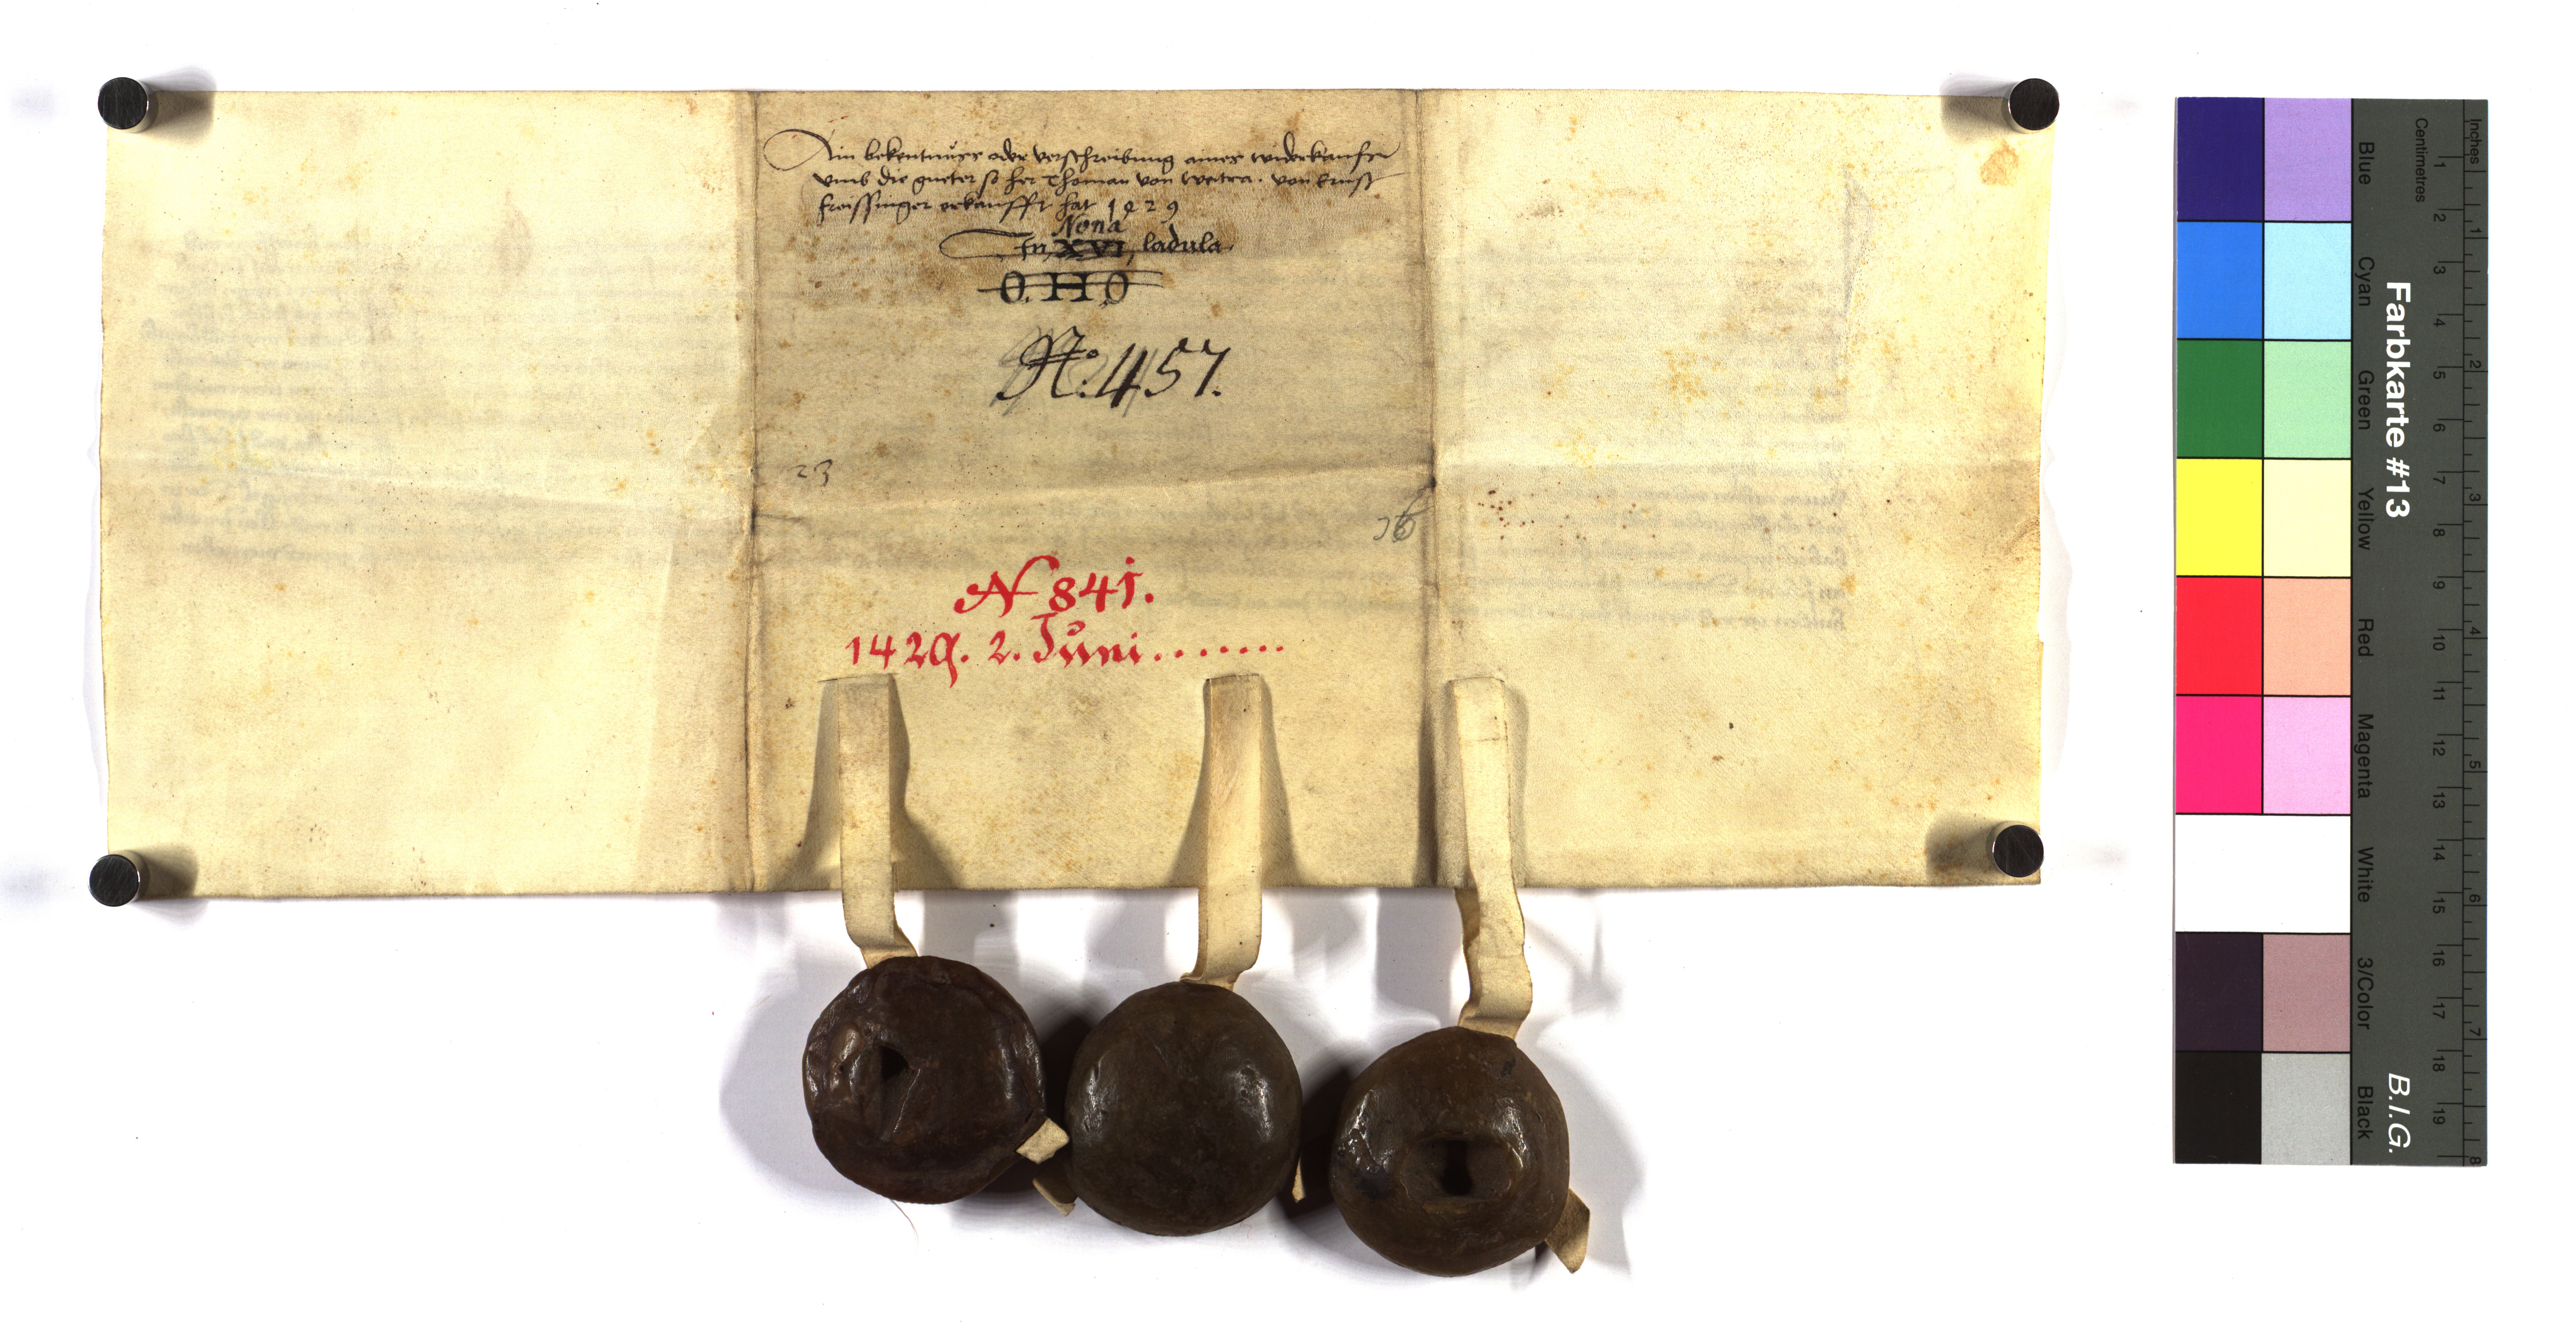 Ain bekentnuss oder verschreibung aines widerkaufs
vmb die gueter so her Thoman von Weitra. von Ernst
freissinger erkaufft hat 1429
Nona
In, XVI, ladula
O. H O
N: 457.
23
N 841.
1429. 2. Juni........
Farbkarte #13
B.I.G.
Inches
Centimetres
1 2 3 4 5 6 7 8
1 2 3 4 5 6 7 8 9 10 11 12 13 14 15 16 17 18 19
Blue
Cyan
Green
Yellow
Red
Magenta
White
3/Color
Black